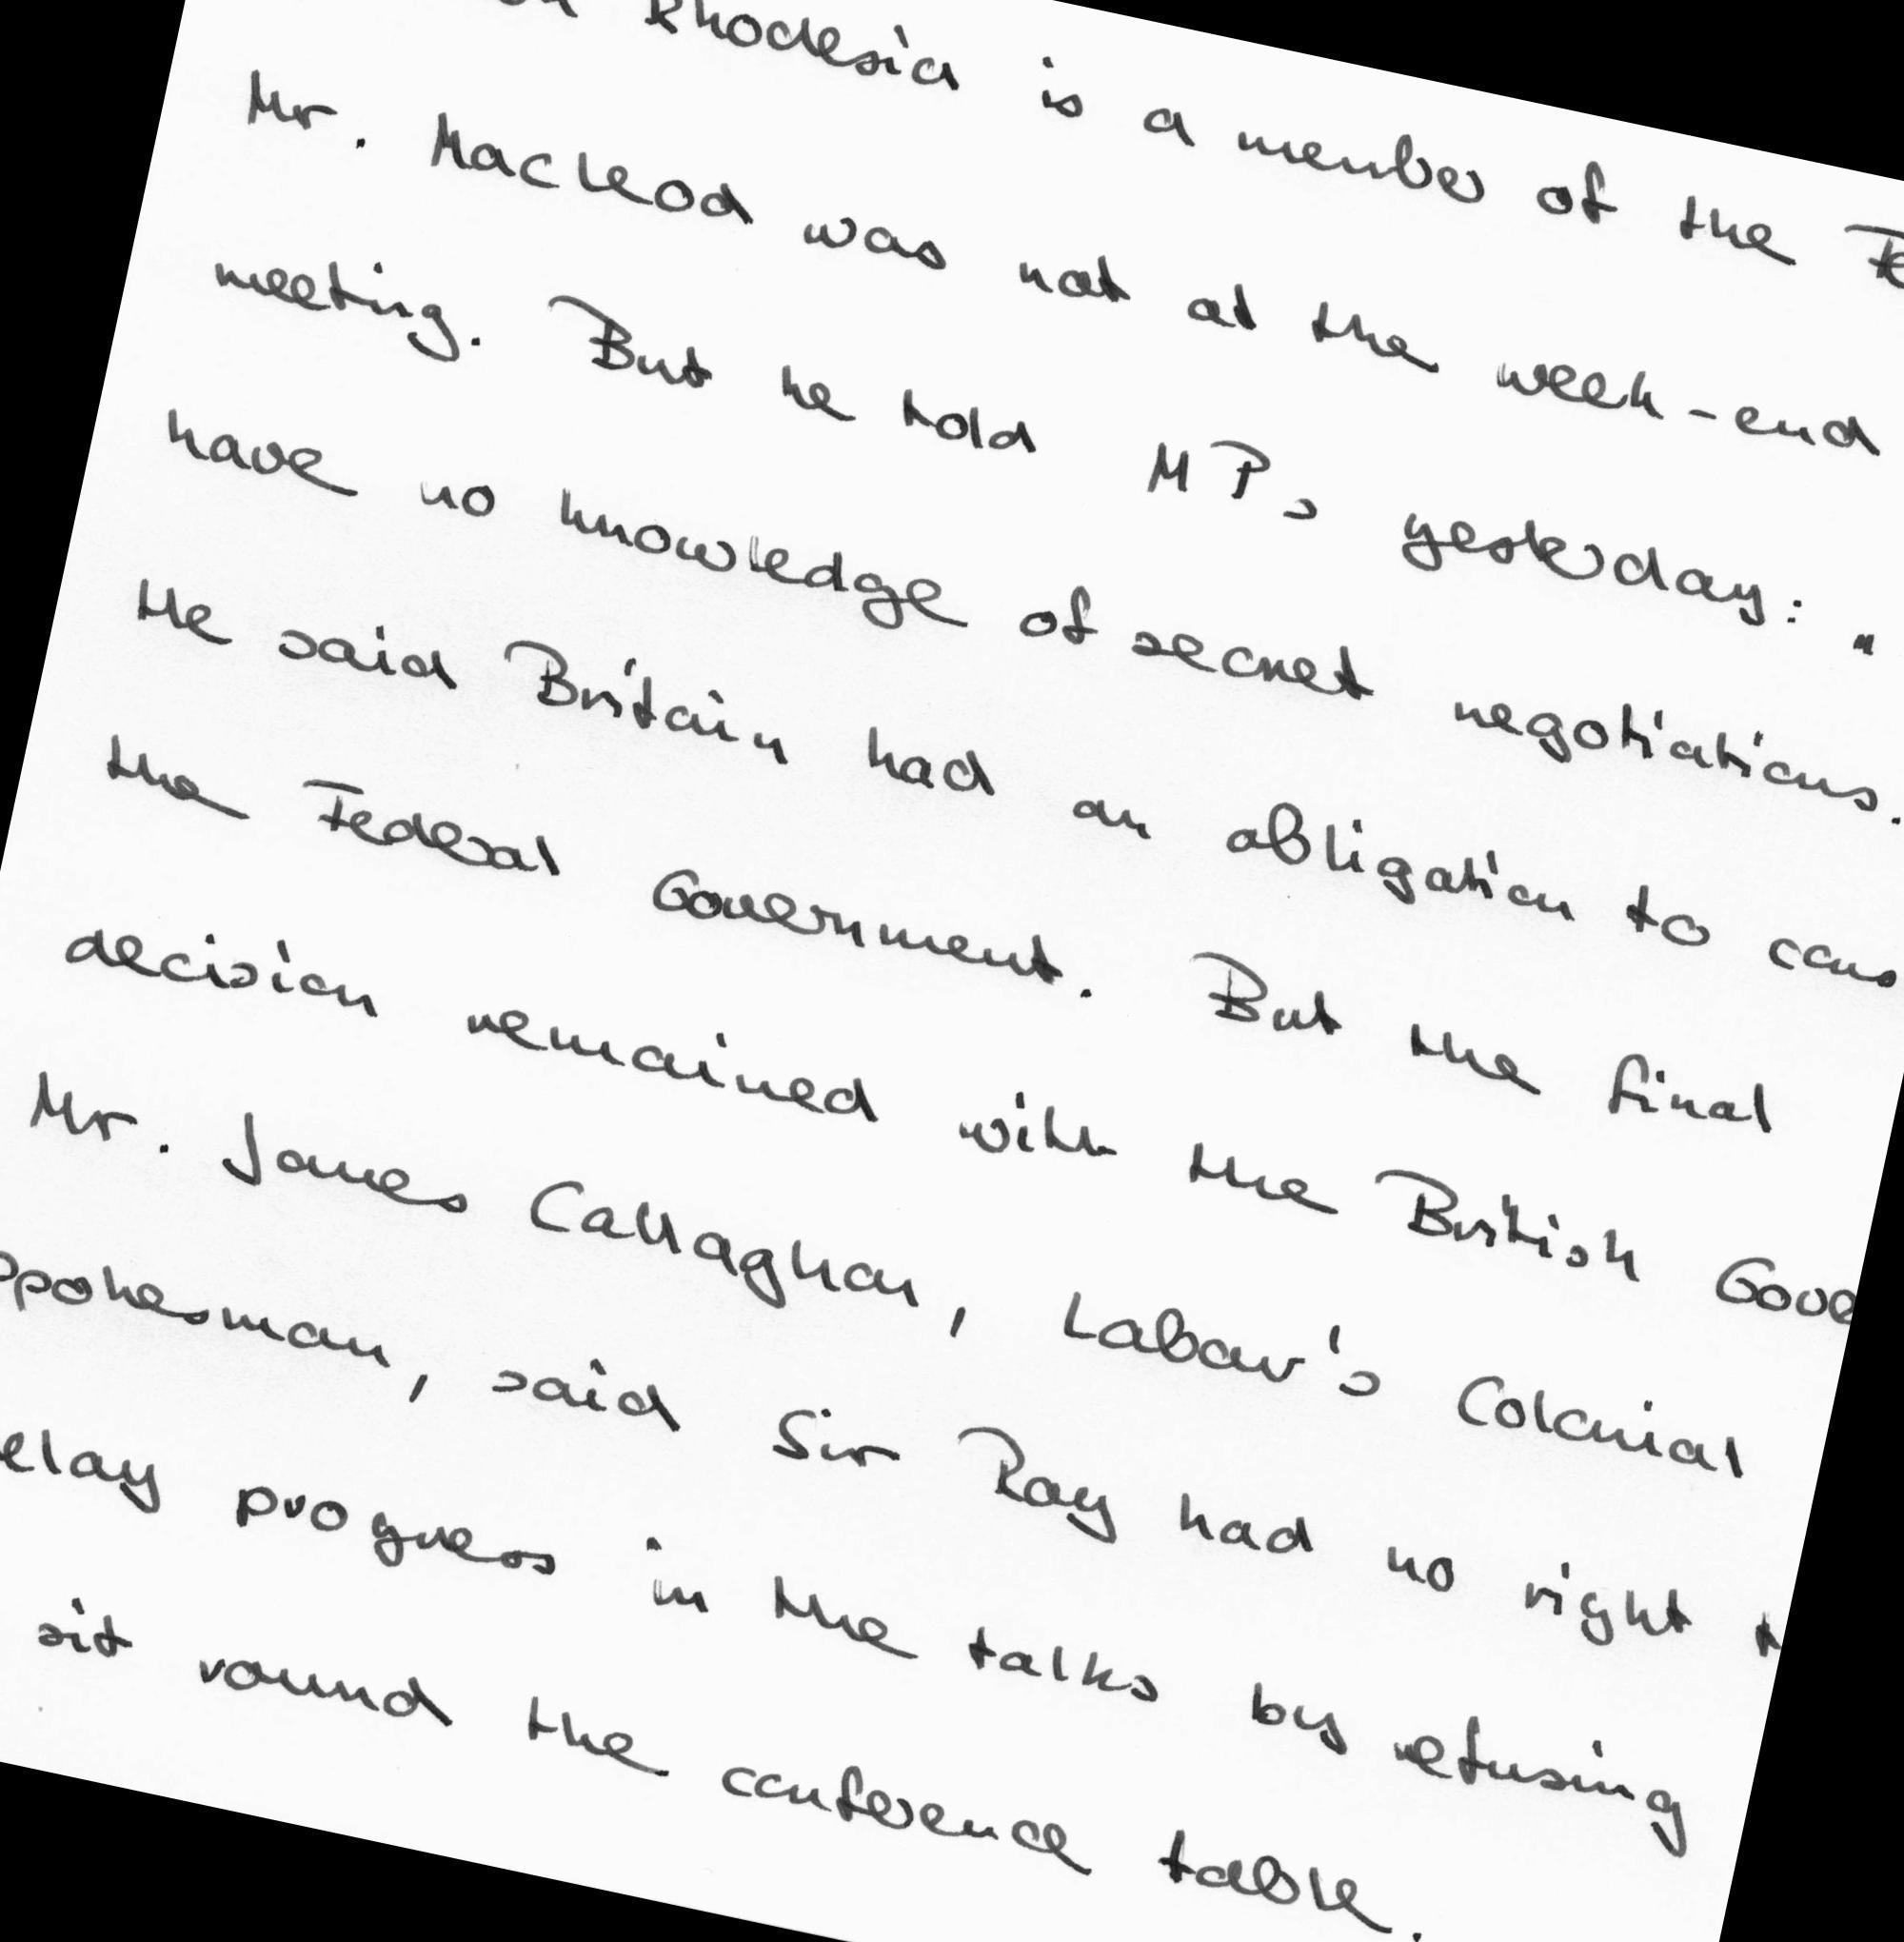 Rhodesia is a member of the
Mr. Macleod was not at the week-end
meeting. But he told MPs yesterday: "
have no knowledge of secret negotiations.
He said Britain had an obligation to cons
the Federal Government. But the final
decision remained with the British Gove
Mr. James Callaghan, Labour's Colonial
spokesman, said Sir Roy had no right t
elay progress in the talks by refusing
sit round the conference table.